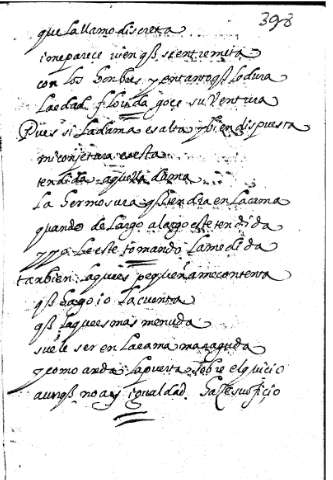 393
que la llamo discreta
i one parece vien qs̃ se entremeta
con los honbres y entanto qs̃ le dura
la edad florida goce su Ventura
Pues si la dama es alta y bien dispuesta
mi conjetura es esta
tendida aquella dama
la hermosura qs̃ tiendra en la cama
quando de largo a largo este tendida
y yo le este tomando la medida
tanbien la qe es pequena me contenta
qs̃ hago io la cuenta
qs̃ la que es mas menuda
suele ser en la cama mas aguda
y como anda la puerta sobre el quicio
aunqs̃ no ay igualdad haçe su ofiçio